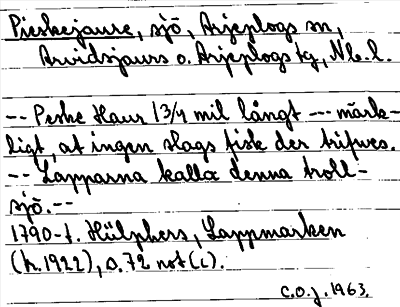 Pieskejaure, sjö, Arjeplogs sn,
Arvidsjaurs o. Arjeplogs tg, Nb.l.
-- Peske Haur 1 3/4 mil långt --- märk-
ligt, at ingen slags fisk der trifwes.
-- Lapparna kalla denna troll-
sjö. --
1790-t. Hülphers, Lappmarken
(tr. 1922), s. 72 not (c).
C.O.J. 1963.